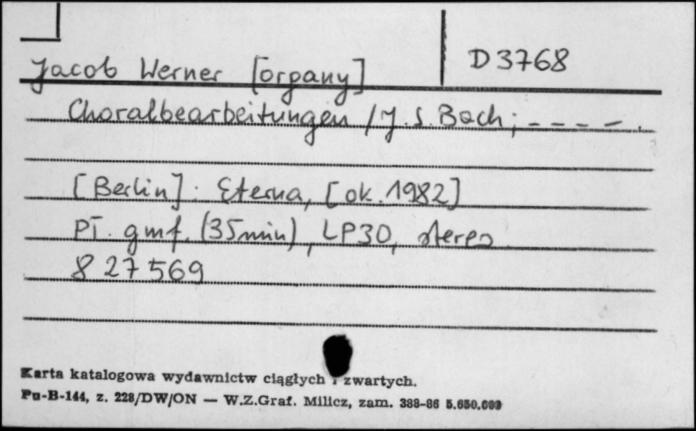 D 3768
Jacob Werner [organy]
Choralbearbeitungen / J. S. Bach ; - - - - .
[Berlin] : Eterna, [ok. 1982]
Pł. gmf. (35 min), LP30, stereo
8 27 569
Karta katalogowa wydawnictw ciągłych i zwartych.
Pu-B-144, z. 228/DW/ON — W.Z.Graf. Milicz, zam. 388-86 5.650.000